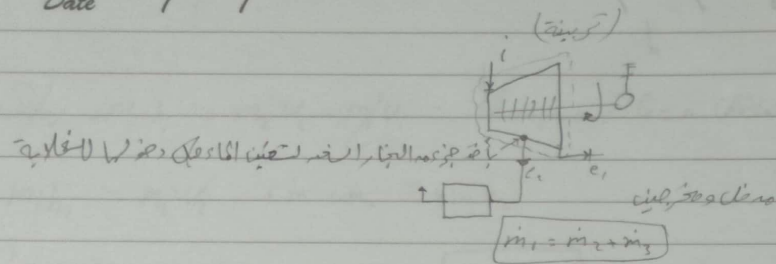 Date
(تربينة)
i
يأخذ جزء من البخار لتسخين الماء قبل دخولها للغلاية
e₂
e₁
مدخل ومخرجين
ṁ₁ = ṁ₂ + ṁ₃